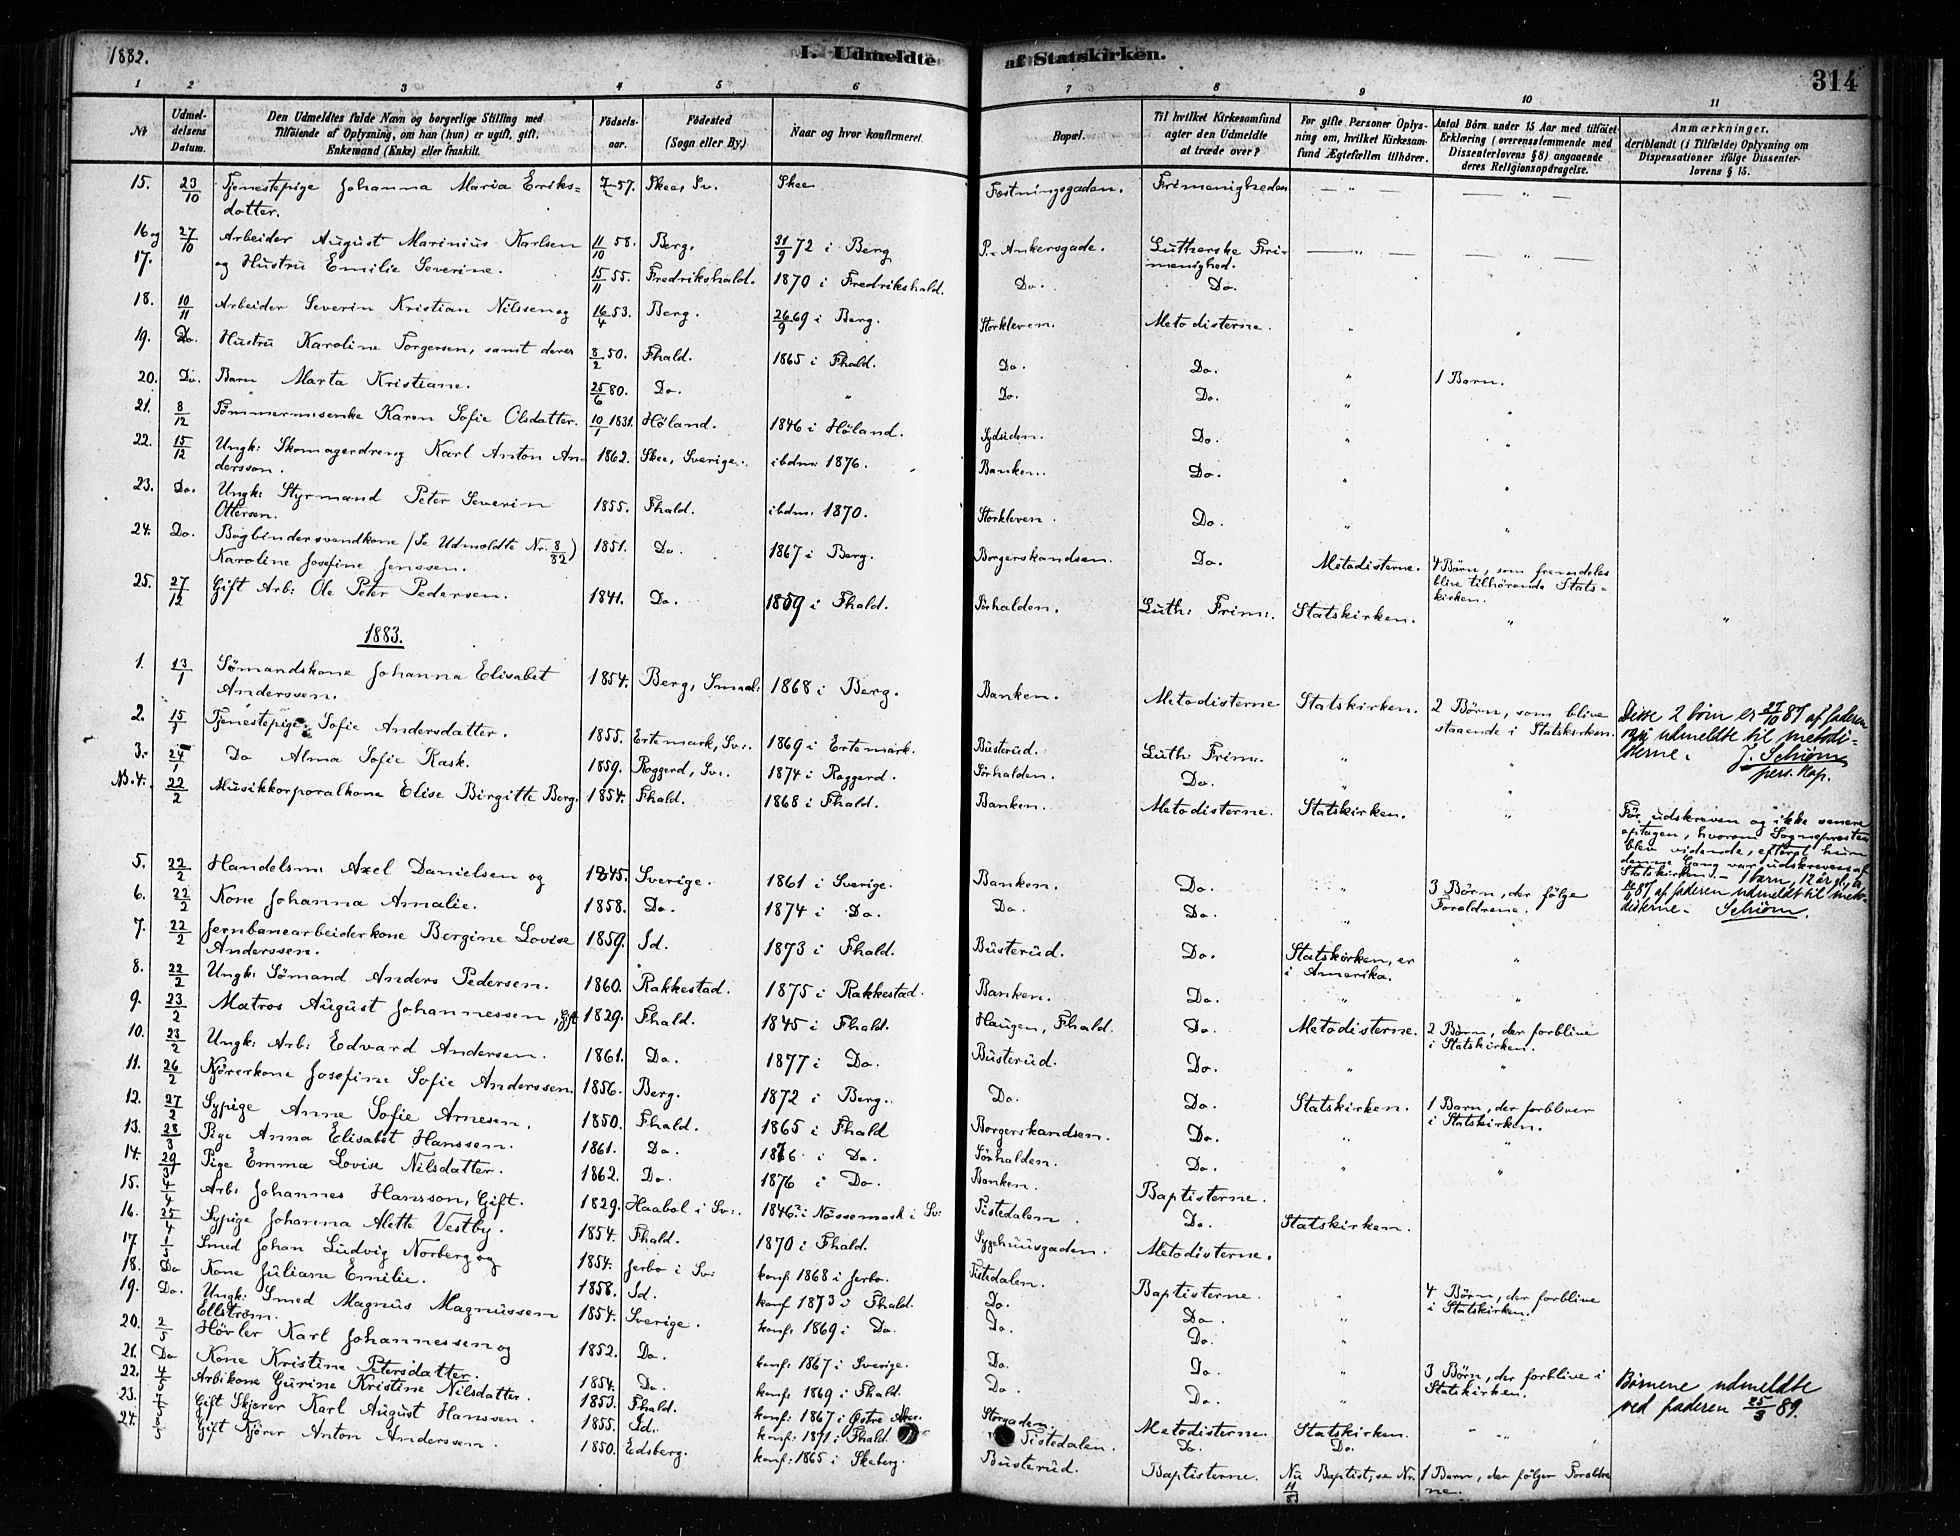 1882.
I. Udmeldte af Statskirken.
314
1 2 3 4 5 6 7 8 9 10 11
No
Udmeldelsens Datum.
Den Udmeldtes fulde Navn og borgerlige Stilling med
Tilføiende af Oplysning, om han (hun) er ugift, gift,
Enkemand (Enke) eller fraskilt.
Fødselsaar.
Fødested
(Sogn eller By.)
Naar og hvor konfirmeret.
Bopæl.
Til hvilket Kirkesamfund
agter den Udmeldte
at træde over?
For gifte Personer Oplysning om, hvilket Kirkesamfund Ægtefællen tilhører.
Antal Børn under 15 Aar med tilføiet
Erklæring (overensstemmende med
Dissenterlovens § 8) angaaende
deres Religionsopdragelse.
Anmærkninger.
deriblandt (i Tilfælde) Oplysning om
Dispensationer ifølge Dissenterlovens § 15.
15. 23/10 Tjenestepige Johanna Maria Eriks= 7/2 57. Skee, Sv. Skee Fæstningsgaden. Frimenigheden — " — — " —
datter.
16 og 27/10 Arbeider August Marinius Karlsen 11/10 58. Berg. 31/9 72 i Berg P. Ankersgade. Lutherske Fri- — " — — " —
menighed.
17. og Hustru Emilie Severine. 15/11 55. Fredrikshald. 1870 i Fredrikshald. Do. Do.
18. 10/11 Arbeider Severin Kristian Nilssen og 16/4 53. Berg. 26/9 69 i Berg. Storkleven. Metodisterne. " "
19. Do. Hustru Karoline Torgersen, samt deres 8/2 50. Fhald. 1865 i Fhald. Do. Do. " 1 Barn.
20. Do. Barn Marta Kristiane. 25/6 80. Do. " Do. Do. " "
21. 8/12 Tømmermsenke Karen Sofie Olsdatter. 10/1 1831. Höland. 1846 i Höland. Sydsiden. Do. " "
22. 15/12 Ungk: Skomagerdreng Karl Anton An- 1862. Skee, Sverige. ibdm: 1876. Banken. Do. " "
dersson.
23. Do. Ungk: Styrmand Peter Severin 1855. Fhald. ibdm: 1870. Storkleven. Do. " "
Ottersen.
24. Do. Bogbindersvendkone (Se Udmeldte Nr. 8/82) 1851. Do. 1867 i Berg. Borgerskandsen. Do. Metodisterne. 4 Børn, som fremdeles
Karoline Josefine Jenssen. blive tilhørende Stats-
kirken.
25. 27/12 Gift Arb: Ole Peter Pedersen. 1841. Do. 1859 i Fhald. Sörhalden. Luth: Frim:. Statskirken. " "
1883.
1. 13/1 Sömandskone Johanna Elisabet 1854. Berg, Smaal: 1868 i Berg. Banken. Metodisterne Statskirken. 2 Børn, som blive
Anderssen. staaende i Statskirken.
Disse 2 børn er 27/10 87 af faderen
udmeldte til metodi-
sterne. J. Schiøm
pers. Kap.
2. 15/1 Tjenestepige Sofie Andersdatter. 1855. Ertemark, Sv:. 1869 i Ertemark. Busterud. Luth: Frim:. " "
3. 24/1 Do Alma Sofie Rask. 1859. Roggerd, Sv:. 1874 i Roggerd. Sörhalden. Do. " "
NB. 4. 22/2 Musikkorporalkone Elise Birgitte Berg. 1854. Fhald. 1868 i Fhald. Banken. Metodisterne. Statskirken. "
Før udskreven og ikke senere
optagen, hvorom Sognepresten
blev vidende, efterat hun
denne Gang var udskreven af
Statskirken. – 1 barn, 12 år gl., er
87 af faderen udmeldt til meto-
disterne. Schiøm.
5. 22/2 Handelsm: Axel Danielsen og 1845. Sverige. 1861 i Sverige. Banken. Do. " 3 Børn, der følge
Forældrene.
6. 22/2 Kone Johanna Amalie. 1858. Do. 1874 i Do. Do. Do. " "
7. 22/2 Jernbanearbeiderkone Bergine Lovise 1859. Id. 1873 i Fhald. Busterud. Do. Statskirken, er "
Anderssen. i Amerika.
8. 22/2 Ungk: Sömand Anders Pedersen. 1860. Rakkestad. 1875 i Rakkestad. Banken. Do. " "
9. 23/2 Matros August Johannessen, Gift 1829. Fhald. 1845 i Fhald. Haugen, Fhald. Do. Metodisterne. 2 Børn, der forblive
i Statskirken.
10. 23/2 Ungk: Arb: Edvard Andersen. 1861. Do. 1877 i Do. Busterud. Do. " "
11. 26/2 Kjørerkone Josefine Sofie Anderssen 1856. Berg. 1872 i Berg. Do. Do. Statskirken. 1 Barn, der forbliver
i Statskirken.
12. 27/2 Sypige Anne Sofie Arnesen. 1850. Fhald. 1865 i Fhald Borgerskandsen. Do. " "
13. 28/3 Pige Anna Elisabet Hanssen. 1861. Do. 1876 i Do. Sörhalden. Do. " "
14. 29/3 Pige Emma Lovise Nilsdatter. 1862. Do. 1876 i Do. Banken. Baptisterne.
15. 4/4 Arb: Johannes Hansson, Gift. 1829. Haabol i Sv:. 1846? i Nössemark i Sv: Tistedalen. Do. Statskirken.
16. 25/4 Sypige Johanna Alette Vestby. 1854. Fhald. 1870 i Fhald. Sygehuusgaden. Metodisterne.
17. 1/5 Smed Johan Ludvig Norberg og 1854. Jerbo i Sv: konf: 1868 i Jerbo. Tistedalen. Baptisterne. " 4 Børn, der forblive
i Statskirken.
18. Do Kone Juliane Emilie. 1858. Id. konf 1873 i Fhald. Do. Do. "
19. Do. Ungk: Smed Magnus Magnussen 1854. Sverige. konf: 1869 i Do. Do. Do. "
Ellström.
20. 2/5 Hövler Karl Johannessen og 1852. Do. konf: 1867 i Sverige. Do. Do. " 3 Børn, der forblive i
Statskirken.
Børnene udmeldte
ved faderen 25/3 89.
21. Do Kone Kristine Petersdatter. 1854. Do. konf: 1869 i Fhald. Do. Do. "
22. 4/5 Arbikone Gurine Kristine Nilsdatter. 1853. Fhald. konf: 1867 i Østre Aker. Storgaden. Metodisterne. Statskirken. " "
23. 7/5 Gift Skjærer Karl August Hanssen. 1855. Id. konf: 1871 i Fhald Tistedalen. Do. Do.
24. Gift Kjörer Anton Anderssen. 1850. Edsberg. konf: 1865 i Skeberg. Busterud. Baptisterne. Nu Baptist, se Nr. 11/83 1 Barn, der følger Foræld-
rene.